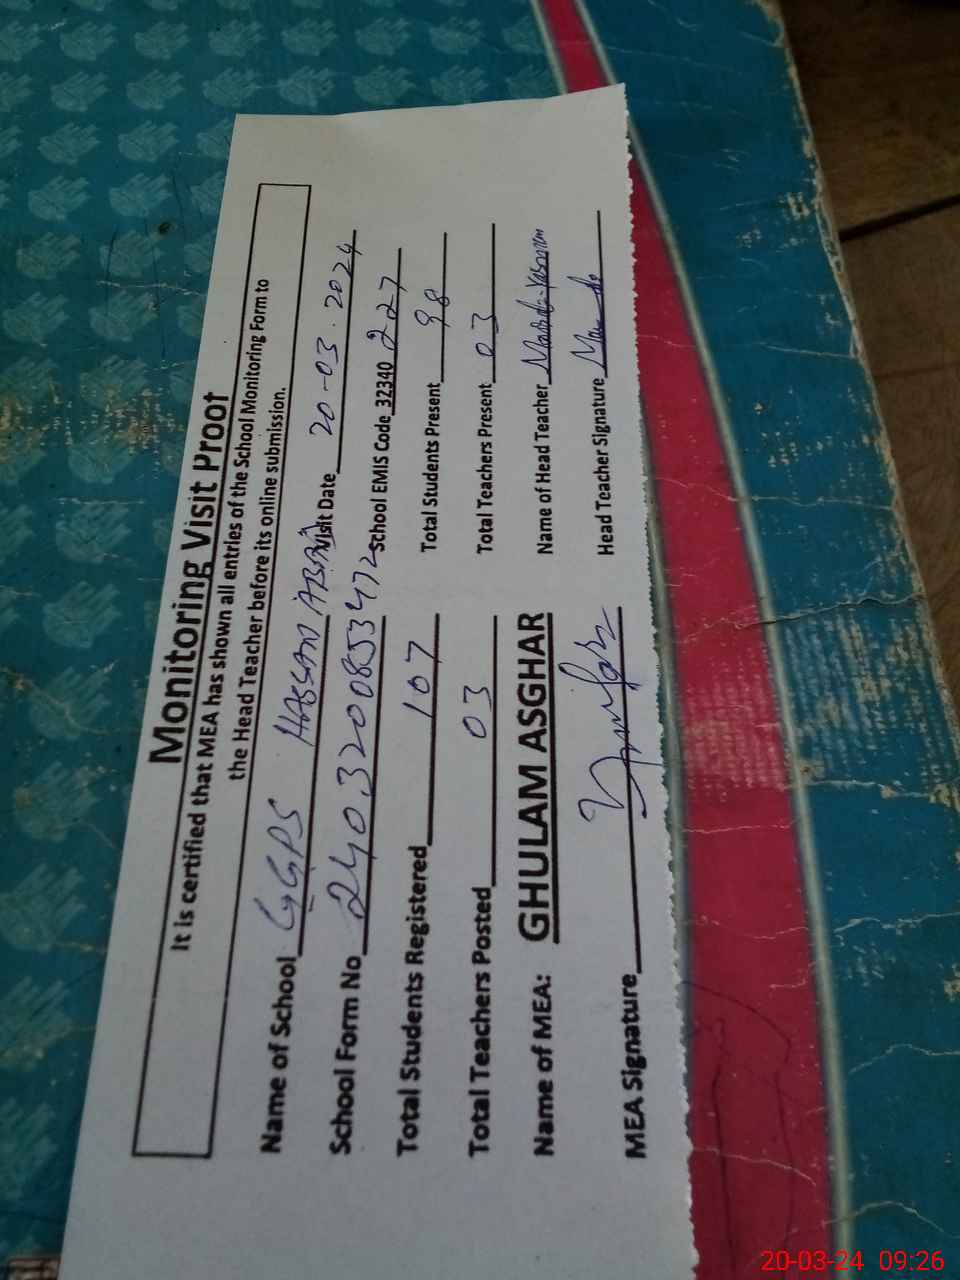 Monitoring Visit Proof
It is certified that MEA has shown all entries of the School Monitoring Form to
the Head Teacher before its online submission.
Name of School GGPS HASSAN ABAD Visit Date 20-03-2024
School Form No 2403200853472 School EMIS Code 32340 227
Total Students Registered 107 Total Students Present 98
Total Teachers Posted 03 Total Teachers Present 03
Name of MEA: GHULAM ASGHAR Name of Head Teacher
MEA Signature Head Teacher Signature
20-03-24 09:26